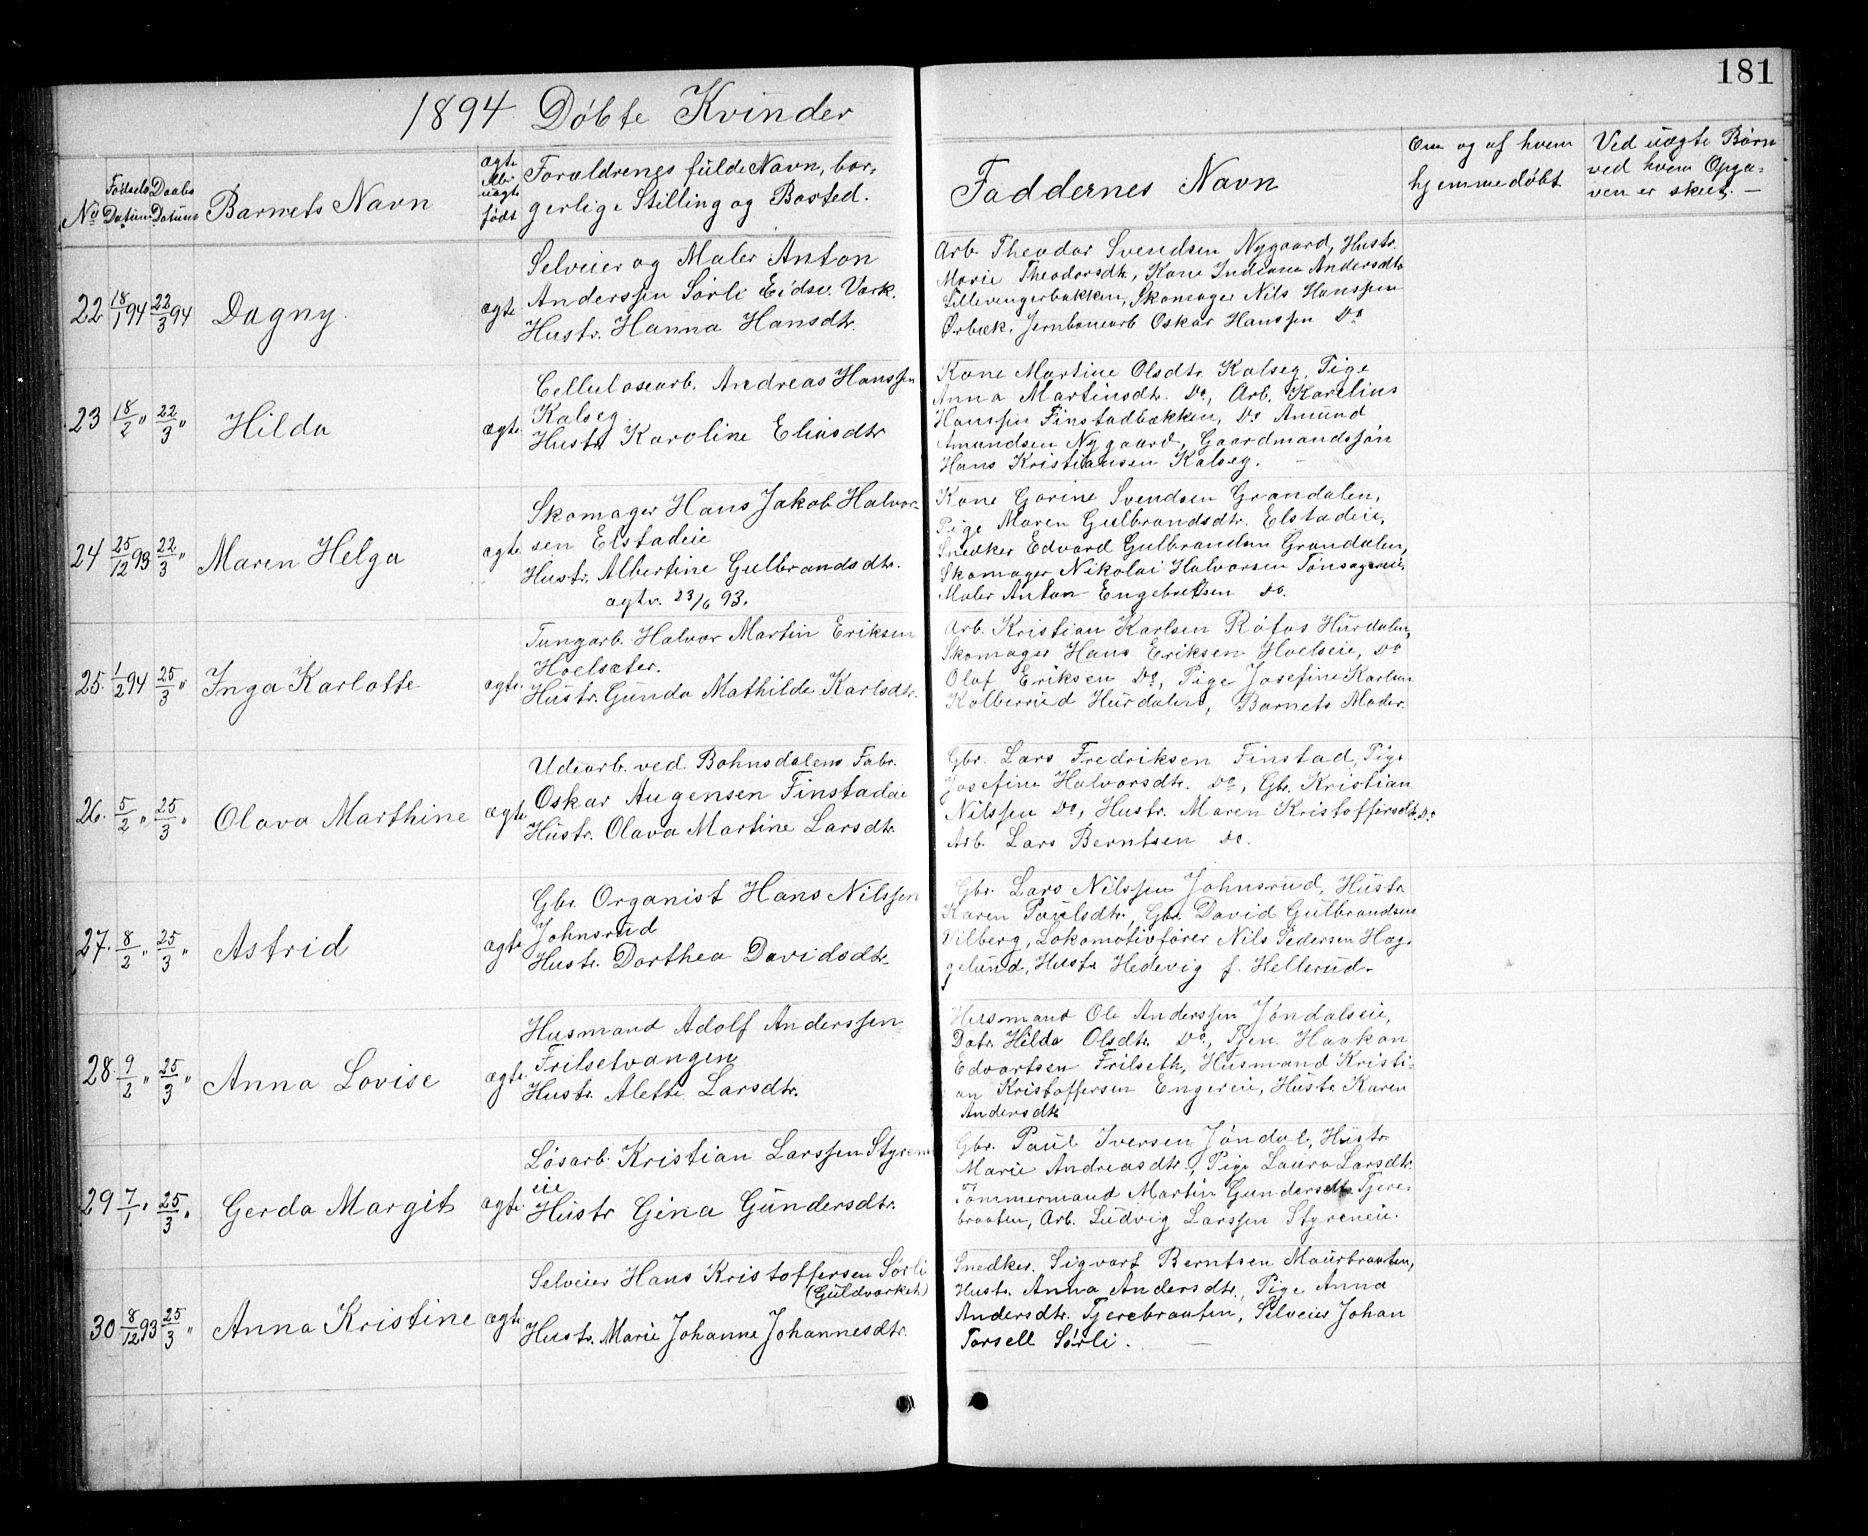 181
1894 Döbte Kvinder
No
Fødsels Datum
Daabs Datum
Barnets Navn
ægte eller uægte født
Foraldrenes fulde Navn, bor-
gerlige Stilling og Bosted.
Faddernes Navn
Om og af hvem
hjemmedøbt
Ved uægte Børn
ved hvem Opga-
ven er skeet. —
22 18/1 94 22/3 94 Dagny ægte
Selveier og Maler Anton
Anderssen Sörli Eidsv. Værk.
Hustr. Hanna Hansdtr.
Arb. Theodor Svendsen Nygaard, Hustr.
Marie Theodorsdtr, Kone Indiana Andersdtr
Lillevengerbakken, Skomager Nils Hanssen
Ørbæk. Jernbanearb Oskar Hanssen Do
23 18/2 " 22/3 " Hilda ægte
Cellulosearb. Andreas Hanssen
Kalseg.
Hustr Karoline Eliasdtr
Kone Martine Olsdtr. Kalseg, Pige
Anna Martinsdtr. Do, Arb. Karelius
Hanssen Finstadbækken, Do Amund
Amundsen Nygaard, Gaardmandssøn
Hans Kristiansen Kalseg. —
24 25/12 93 22/3 " Maren Helga ægte
Skomager Hans Jakob Halvor-
sen Elstadeie
Hustr. Albertine Gulbrandsdtr.
ægtv. 23/6 93.
Kone Gorine Svendsen Grandalen,
Pige Maren Gulbrandsdtr. Elstadeie,
Snedker Edvard Gulbrandsen Grandalen,
Skomager Nikolai Halvorsen Tønsagereie,
Maler Anton Engebretsen do.
25. 1/2 94 25/3 " Inga Karlotte ægte.
Tungarb. Halvor Martin Eriksen
Hoelsæter.
Hustr. Gunda Mathilde Karlsdtr.
Arb. Kristian Karlsen Røtos Hurdalen,
Skomager Hans Eriksen Hoelseie, Do
Olaf Eriksen Do, Pige Josefine Karlsen
Kolberrud Hurdalen, Barnets Moder.
26. 5/2 " 25/3 " Olava Marthine ægte
Udearb. ved Bohnsdalens Fabr.
Oskar Augensen Finstadeie
Hustr. Olava Martine Larsdtr.
Gbr. Lars Fredriksen Finstad, Pige
Josefine Halvorsdtr. Do, Gbr. Kristian
Nilssen Do, Hustr. Maren Kristoffersdtr. Do
Arb. Lars Berntsen do.
27. 8/2 " 25/3 " Astrid ægte
Gbr. Organist Hans Nilssen
Johnsrud
Hustr. Dorthea Davidsdtr.
Gbr. Lars Nilssen Johnsrud, Hustr
Karen Paulsdtr., Gbr. David Gulbrandsen
Vilberg, Lokomotivfører Nils Pedersen Hæg-
gelund, Hustr Hedevig f. Hellerud.
28. 9/2 " 25/3 " Anna Lovise ægte.
Husmand Adolf Anderssen
Frilsetvangen
Hustr. Alette Larsdtr.
Husmand Ole Anderssen Jöndalseie,
Datr. Hilda Olsdtr. Do, Tjen. Haakon
Edvartsen Frilseth, Husmand Kristi-
an Kristoffersen Engereie, Hustr Karen
Andersdtr
29 7/1 " 25/3 " Gerda Margit ægte.
Løsarb. Kristian Larssen Styren-
eie
Hustr Gina Gundersdtr.
Gbr. Paul Iversen Jöndal, Hustr
Marie Andreasdtr., Pige Laura Larsdtr.
Tömmermand Martin Gundersen Tjere-
braaten, Arb. Ludvig Larssen Styreneie.
30 8/12 93 25/3 " Anna Kristine ægte
Selveier Hans Kristoffersen Sörli
(Guldværket)
Hustr. Marie Johanne Johannesdtr.
Snedker. Sigvart Berntsen Maurbraaten,
Hustr. Anna Andersdtr., Pige Anna
Andersdtr. Tjerebraaten, Selveier Johan
Torsell Sørli. —